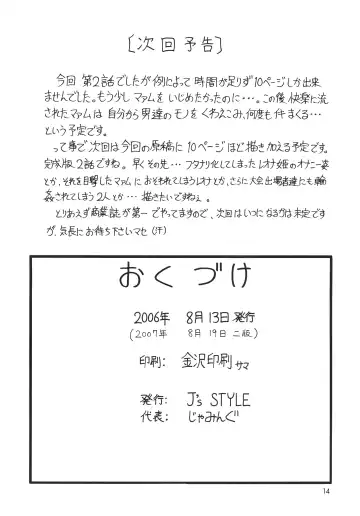 〔次回予告〕
今回第2話でしたが例によって時間が足りず10ページしか出来
ませんでした。もう少しマァムをいじめたかったのに…。この後快楽に流
されたマァムは自分から男達のモノをくわえこみ、何度も
という予定です。
って事で次回は今回の原稿に10ページほど描き加える予定です。
完成版2話ですね。早くその先…フタナリ化してしまったレオナ姫のオナニー姿
とか、それを目撃したマァムにおそわれてしまうレオナとか、さらに大会出場者達にも輪
姦されてしまう2人とか…描きたいですねぇ。
とりあえず商業誌が第一でやってますので、次回はいつになるかは未定です
が、気長にお待ち下さいマセ(汗)
おくづけ
2006年 8月13日発行
(2007年 8月19日二版)
印刷: 金沢印刷サマ
発行: J's STYLE
代表: じゃみんぐ
14